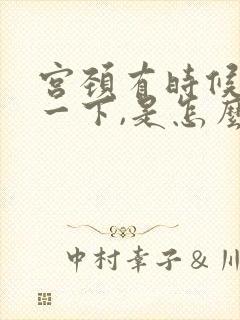 宮頚有時候
一下,是怎麼
中村幸子 & 川